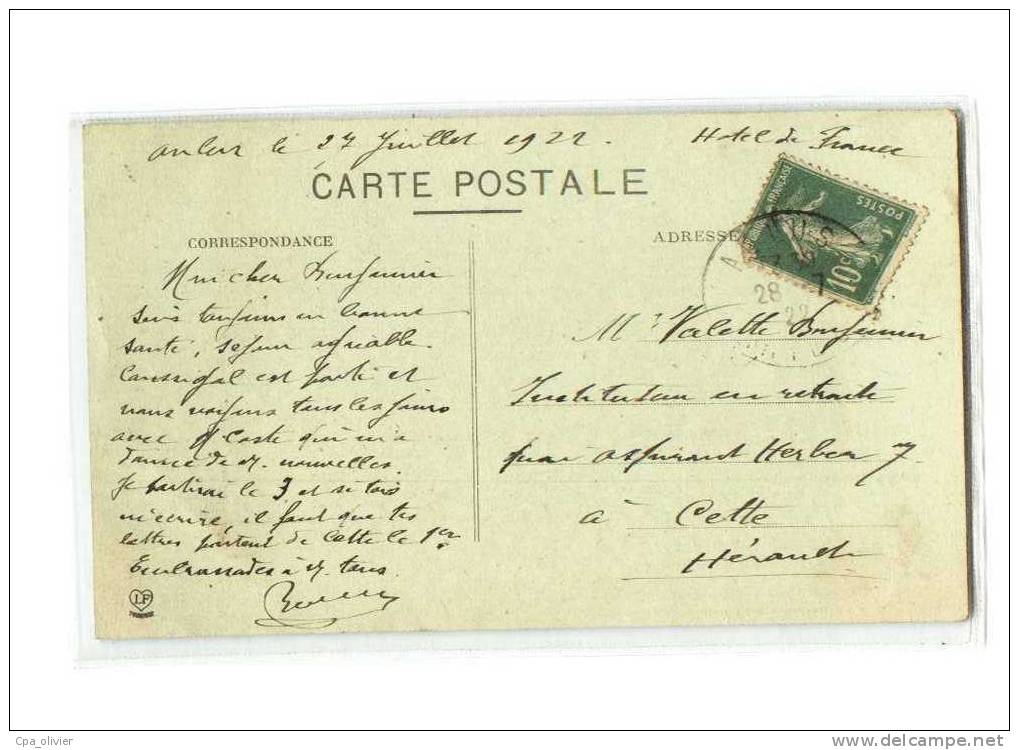 le 27 Juillet 1922. Hotel de France
CARTE POSTALE
CORRESPONDANCE
ADRESSE
FRANÇAISE
POSTES
10c
A US
28 7
22
Mon cher Benjamin
suis toujours en bonne
santé, sejour agréable.
est parti et
nous voyons tous les jours
avec Mr Coste qui m'a
donné de v. nouvelles.
Je partirai le 3 et si tois
m'ecrire, il faut que tes
lettres partent de Cette le 1er.
Embrassades à v. tous.
Mr Valette Benjamin
Instituteur en retraite
quai aspirant Herber 7
à Cette
Hérault
LF
Cpa_olivier
www.delcampe.net